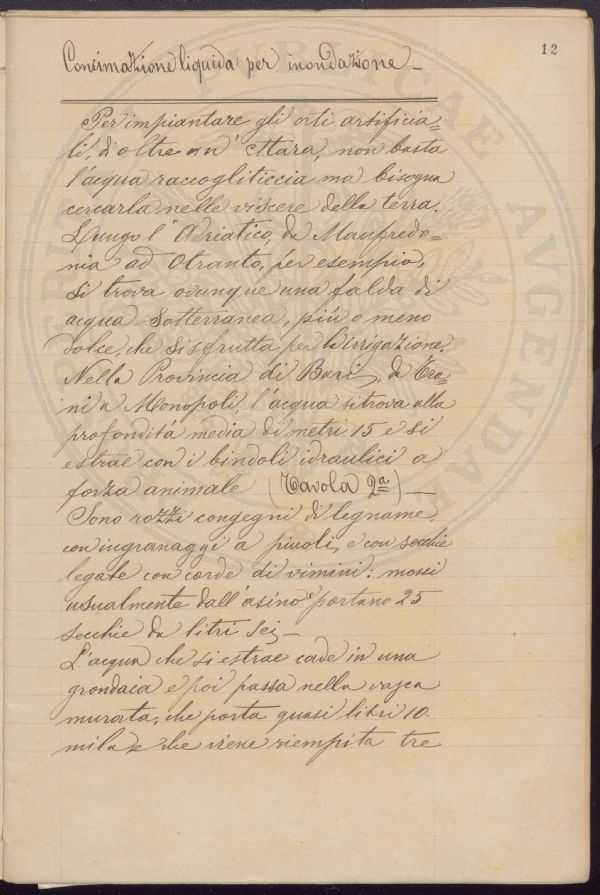 12
Concimazione liquida per inondazione_
Per impiantare gli orti artificia=
li, di oltre un' ettara, non basta
l'acqua raccogliticcia ma bisogna
cercarla nelle viscere della terra.
Lungo l'Adriatico, da Manfredo=
nia ad Otranto, per esempio,
si trova ovunque una falda di
acqua sotterranea, più o meno
dolce, che si sfrutta per l'irrigazione.
Nella Provincia di Bari, da Tra=
ni a Monopoli, l'acqua si trova alla
profondità media di metri 15 e si
estrae con i bindoli idraulici a
forza animale (Tavola 2ª)_
Sono rozzi congegni di legname,
con ingranaggi a piuoli, e con secchie
legate con corde di vimini: mossi
usualmente dall'asino portano 25
secchie da litri sei_
L'acqua che si estrae cade in una
grondaia e poi passa nella vasca
murata, che porta quasi litri 10
mila e che viene riempita tre